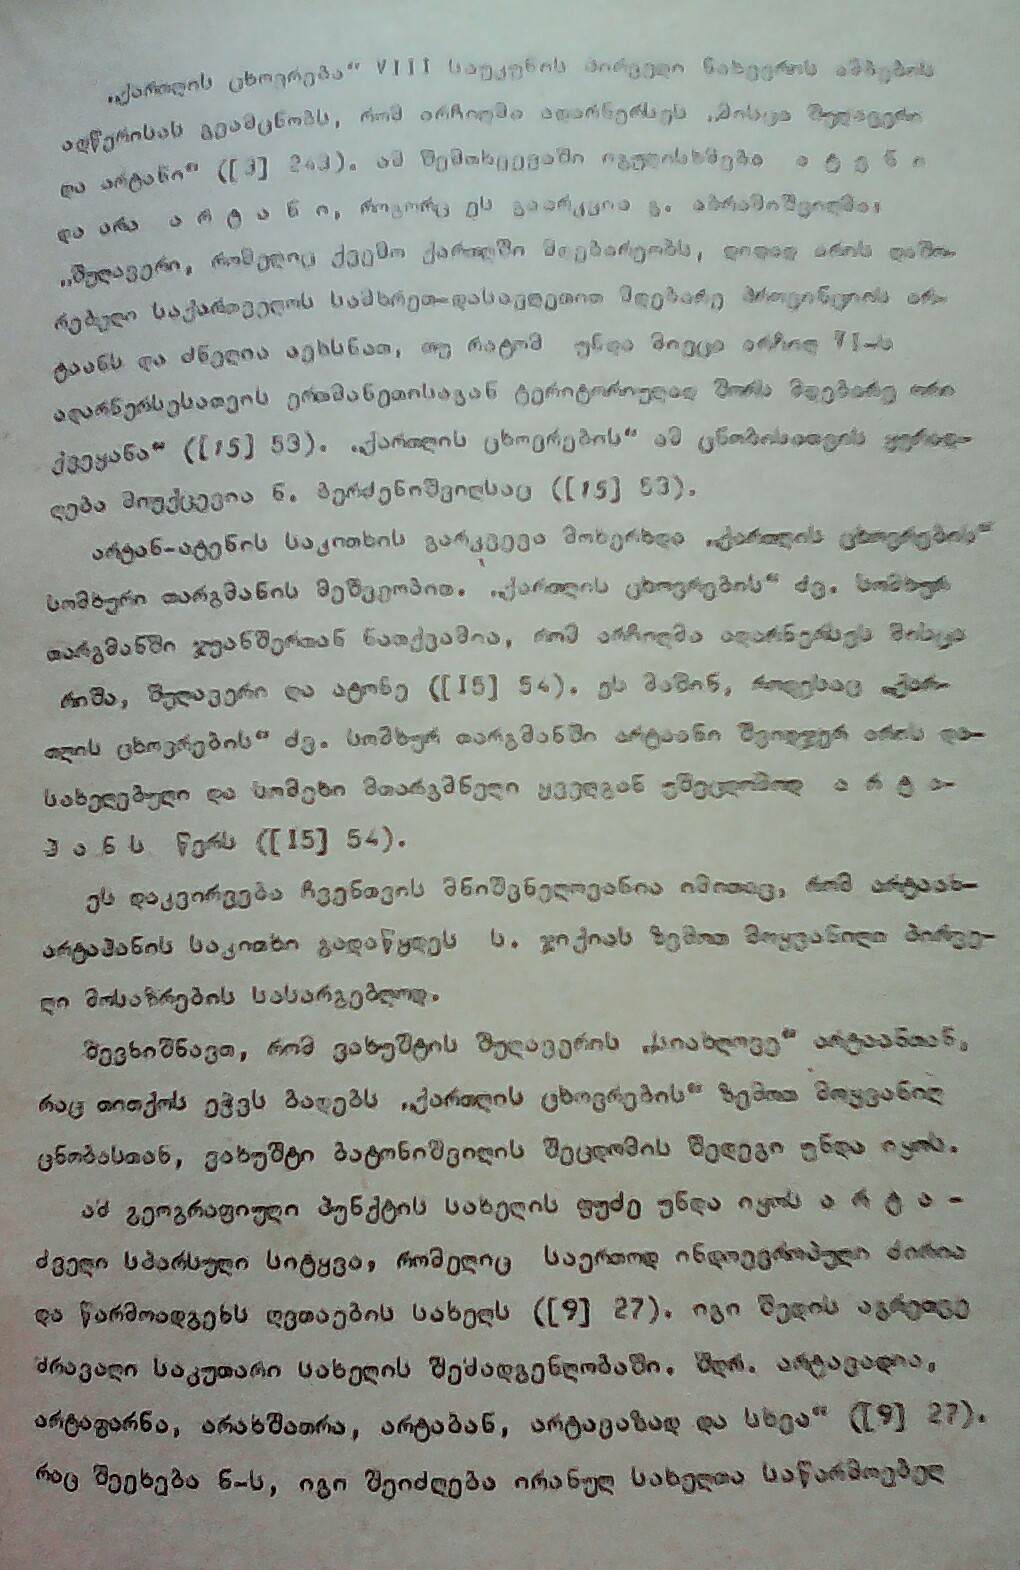 „ქართლის ცხოვრება“ VIII საუკუნის პირველი ნახევრის ამბების
აღწერისას გვამცნობს, რომ არჩილმა ადარნერსეს „მისცა შულავერი
და არტანი“ ([3] 243). ამ შემთხვევაში იგულისხმება ა ტ ე ნ ი
და არა ა რ ტ ა ნ ი, როგორც ეს გაარკვია გ. აბრამიშვილმა:
„შულავერი, რომელიც ქვემო ქართლში მდებარეობს, დიდად არის დაშო-
რებული საქართველოს სამხრეთ-დასავლეთით მდებარე პროვინციის არ-
ტაანს და ძნელია ავხსნათ, თუ რატომ უნდა მიეცა არჩილ VI-ს
ადარნერსესათვის ერთმანეთისაგან ტერიტორიულად შორს მდებარე ორი
ქვეყანა“ ([15] 53). „ქართლის ცხოვრების“ ამ ცნობისათვის ყურად-
ღება მიუქცევია ნ. ბერძენიშვილსაც ([15] 53).
არტან-ატენის საკითხის გარკვევა მოხერხდა „ქართლის ცხოვრების“
სომხური თარგმანის მეშვეობით. „ქართლის ცხოვრების“ ძვ. სომხურ
თარგმანში ჯუანშერთან ნათქვამია, რომ არჩილმა ადარნერსეს მისცა
რიშა, შულავერი და ატონე ([15] 54). ეს მაშინ, როდესაც „ქარ-
თლის ცხოვრების“ ძვ. სომხურ თარგმანში არტაანი შვიდჯერ არის და-
სახელებული და სომეხი მთარგმნელი ყველგან უშეცდომოდ ა რ ტ ა-
ჰ ა ნ ს წერს ([15] 54).
ეს დაკვირვება ჩვენთვის მნიშვნელოვანია იმითაც, რომ არტაახ-
არტაჰანის საკითხი გადაწყდეს ს. ჯიქიას ზემოთ მოყვანილი პირვე-
ლი მოსაზრების სასარგებლოდ.
შევხიშნავთ, რომ ვახუშტის შულავერის „სიახლოვე“ არტაანთან,
რაც თითქოს ეჭვს ბადებს „ქართლის ცხოვრების“ ზემოთ მოყვანილ
ცნობასთან, ვახუშტი ბატონიშვილის შეცდომის შედეგი უნდა იყოს.
ამ გეოგრაფიული პუნქტის სახელის ფუძე უნდა იყოს ა რ ტ ა -
ძველი სპარსული სიტყვა, რომელიც საერთოდ ინდოევროპული ძირია
და წარმოადგენს ღვთაების სახელს ([9] 27). იგი შედის აგრეთვე
მრავალი საკუთარი სახელის შემადგენლობაში. შდრ. არტავადია,
არტაფარნა, არახშათრა, არტაბან, არტავაზად და სხვა“ ([9] 27).
რაც შეეხება ნ-ს, იგი შეიძლება ირანულ სახელთა საწარმოებელ